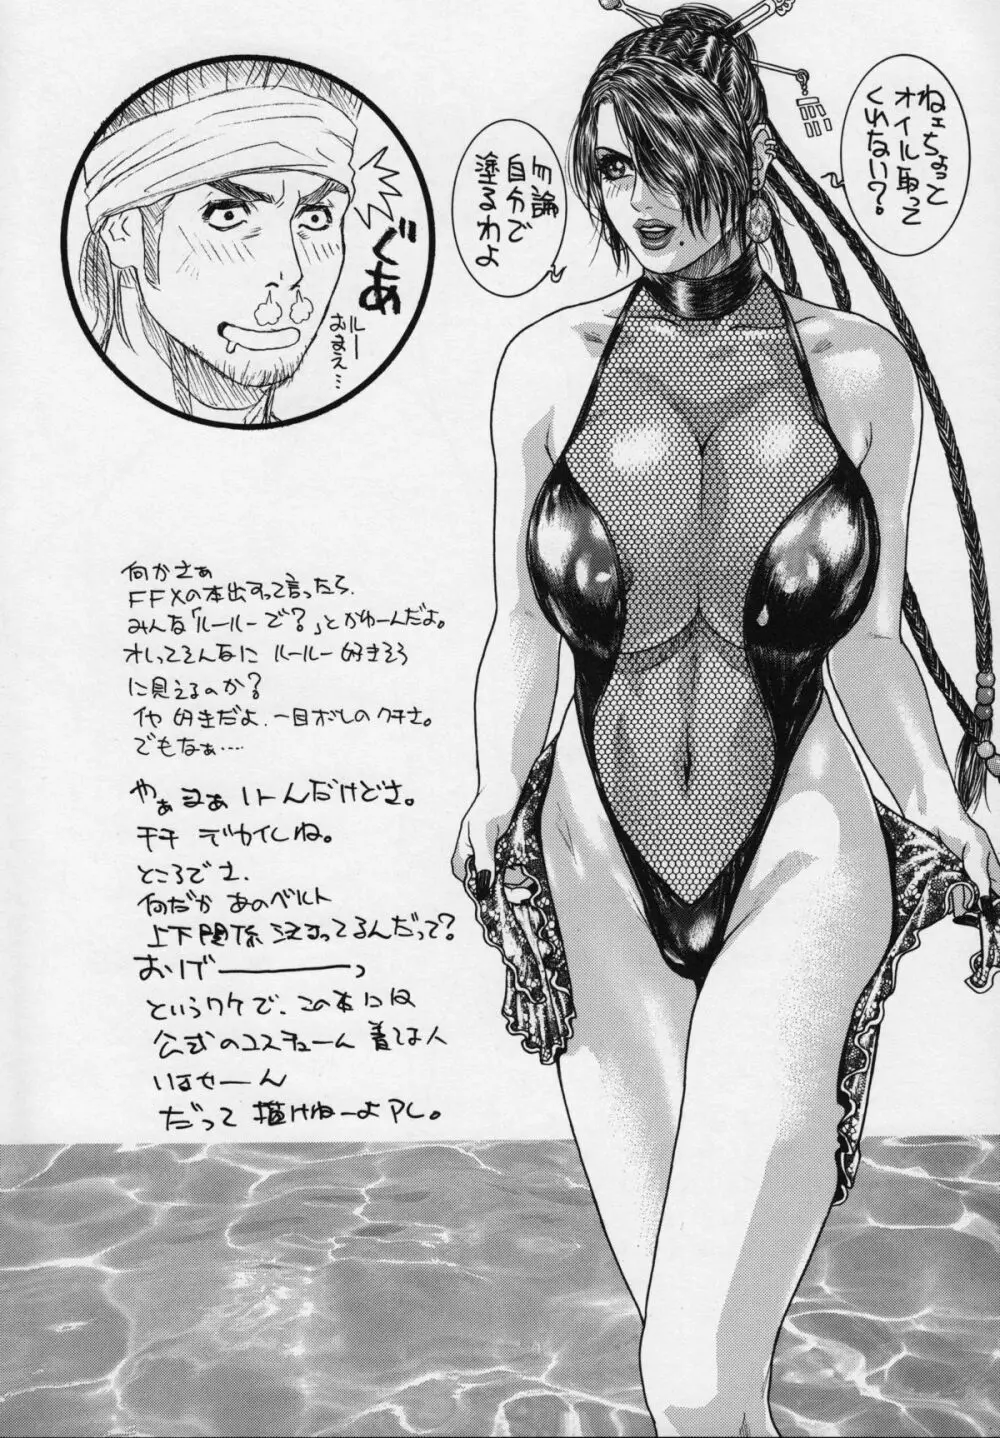 ねェちょっと
オイル取って
くれない?
勿論
自分で
塗るわよ
ぐあ
ルー
おまえ…
何かさぁ
FFXの本出すって言ったら、
みんな「ルールーで?」とかゆーんだよ。
オレってそんなに ルールー 好きそう
に見えるのか?
イヤ 好きだよ、一目ボレのクチさ。
でもなぁ‥‥
やぁ まぁ いーんだけどさ。
チチ デカイしね。
ところでさ、
何だか あのベルト
上下関係 決まってるんだって?
おりげ―――っ
というワケで、この本には
公式のコスチューム 着てる人
いませーん
だって 描けねーよアレ。